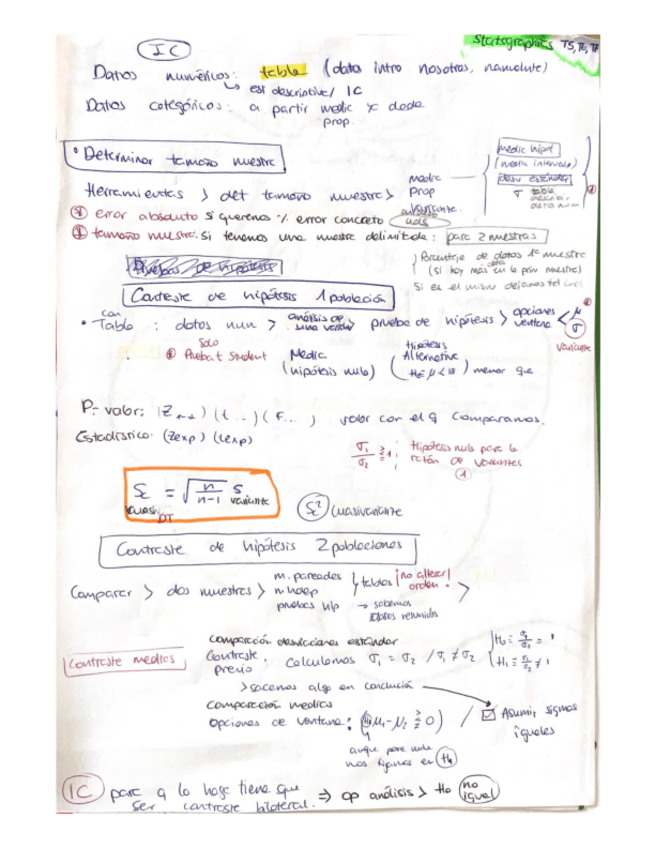 IC
Statsgraphics TS, TC, TF
Datos numéricos: tabla (datos intro nosotros, namolute)
↳ est descriptiva/ IC
Datos categóricos: a partir medic x dada
prop.
• Determinar tamaño muestra
media hipot
(media intervalo)
desv estandar
σ tabla
Herramientas > det tamaño muestra >
Media
Prop
Varianza.
error absoluto si queremos % error concreto
uds
tamaño muestra. si tenemos una muestra delimitada: para 2 muestras
Porcentaje de datos 1ª muestra
(si hay más en la prim muestra)
Si es el mismo dejamos tal
Pruebas de hipótesis
Contraste de hipótesis 1 población
con
• Tabla: datos num > análisis de una variable > prueba de hipótesis > opciones ventana < μ σ
varianza
Solo
Prueba t Student
Media
(hipótesis nula)
Hipótesis
Alternativa
menor que
P-valor: (Z ) (t ...) (F...) valor con el q comparamos.
Estadístico: (Zexp) (texp)
σ₁/σ₂ ≷ 1; Hipótesis nula para la
razón de varianzas
1
Sc = √n/n-1 S
cuasi DT
varianza
Sc² cuasivarianza
Contraste de hipótesis 2 poblaciones
Comparar > dos muestras >
m. pareadas
m. indep
pruebas hip
tablas ¡no alterar orden! >
→ sabemos
datos resumidos
Contraste medias
Comparación desviaciones estándar
Contraste previo. Calculamos σ₁ = σ₂ / σ₁ ≠ σ₂
H₀ = σ₁/σ₂ = 1
H₁ = σ₁/σ₂ ≠ 1
> sacamos algo en conclusión
Comparación medias
Opciones de ventana: (H₁ μ₁ - μ₂ ≷ 0) / ☑ Asumir sigmas
iguales
aunque pone nula
nos fijamos en H₁
IC para q lo haga tiene que
ser contraste bilateral. ⇒ op análisis > Ho no
igual